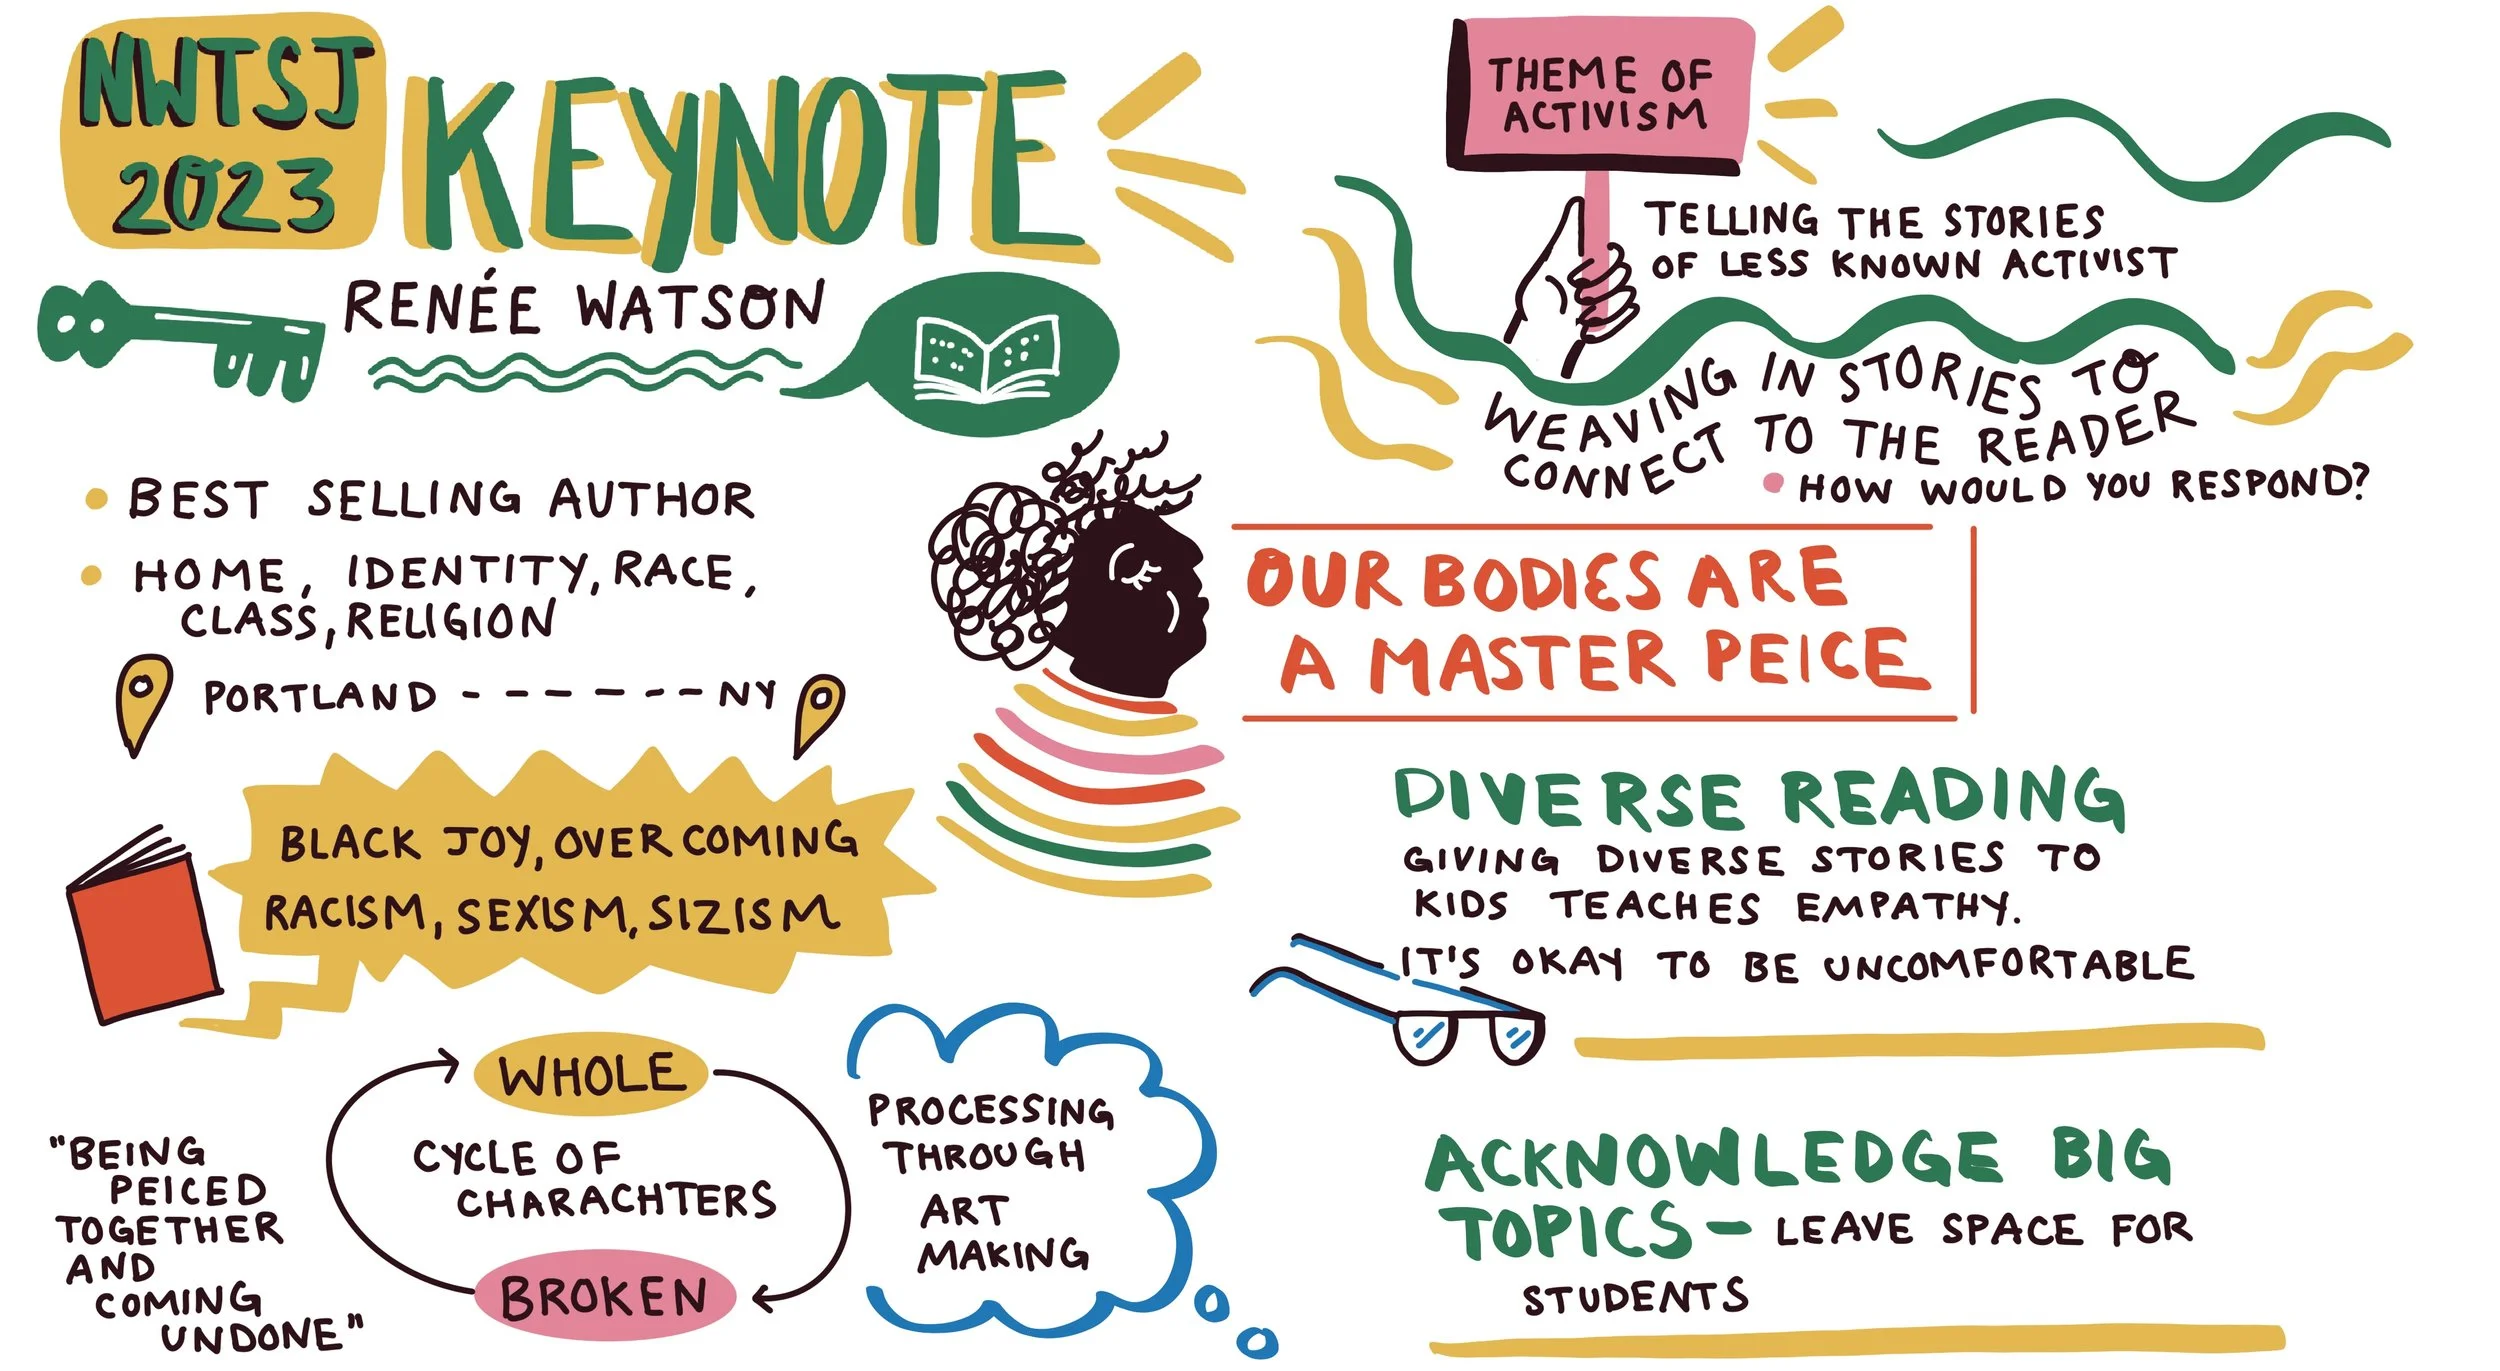 NWTSJ
2023
KEYNOTE
RENÉE WATSON
BEST SELLING AUTHOR
HOME, IDENTITY, RACE,
CLASS, RELIGION
PORTLAND - - - - - - NY
BLACK JOY, OVER COMING
RACISM, SEXISM, SIZISM
WHOLE
CYCLE OF
CHARACHTERS
BROKEN
"BEING
PEICED
TOGETHER
AND
COMING
UNDONE"
PROCESSING
THROUGH
ART
MAKING
THEME OF
ACTIVISM
TELLING THE STORIES
OF LESS KNOWN ACTIVIST
WEAVING IN STORIES TO
CONNECT TO THE READER
HOW WOULD YOU RESPOND?
OUR BODIES ARE
A MASTER PEICE
DIVERSE READING
GIVING DIVERSE STORIES TO
KIDS TEACHES EMPATHY.
IT'S OKAY TO BE UNCOMFORTABLE
ACKNOWLEDGE BIG
TOPICS - LEAVE SPACE FOR
STUDENTS